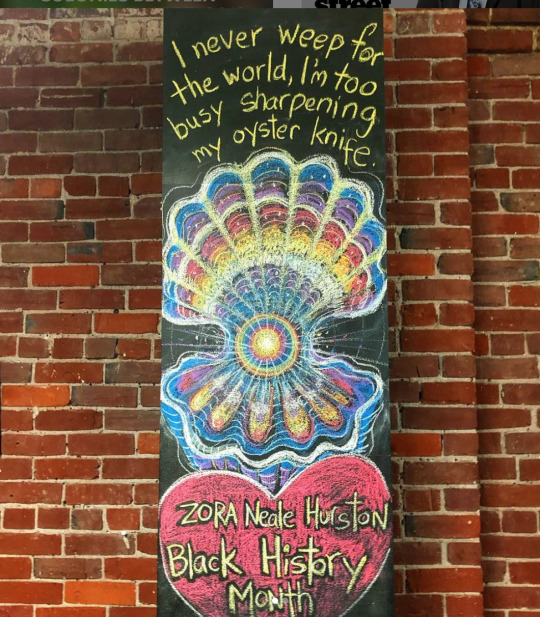 street
I never weep for
the world, I'm too
busy sharpening
my oyster knife.
ZORA Neale Hurston
Black History
Month